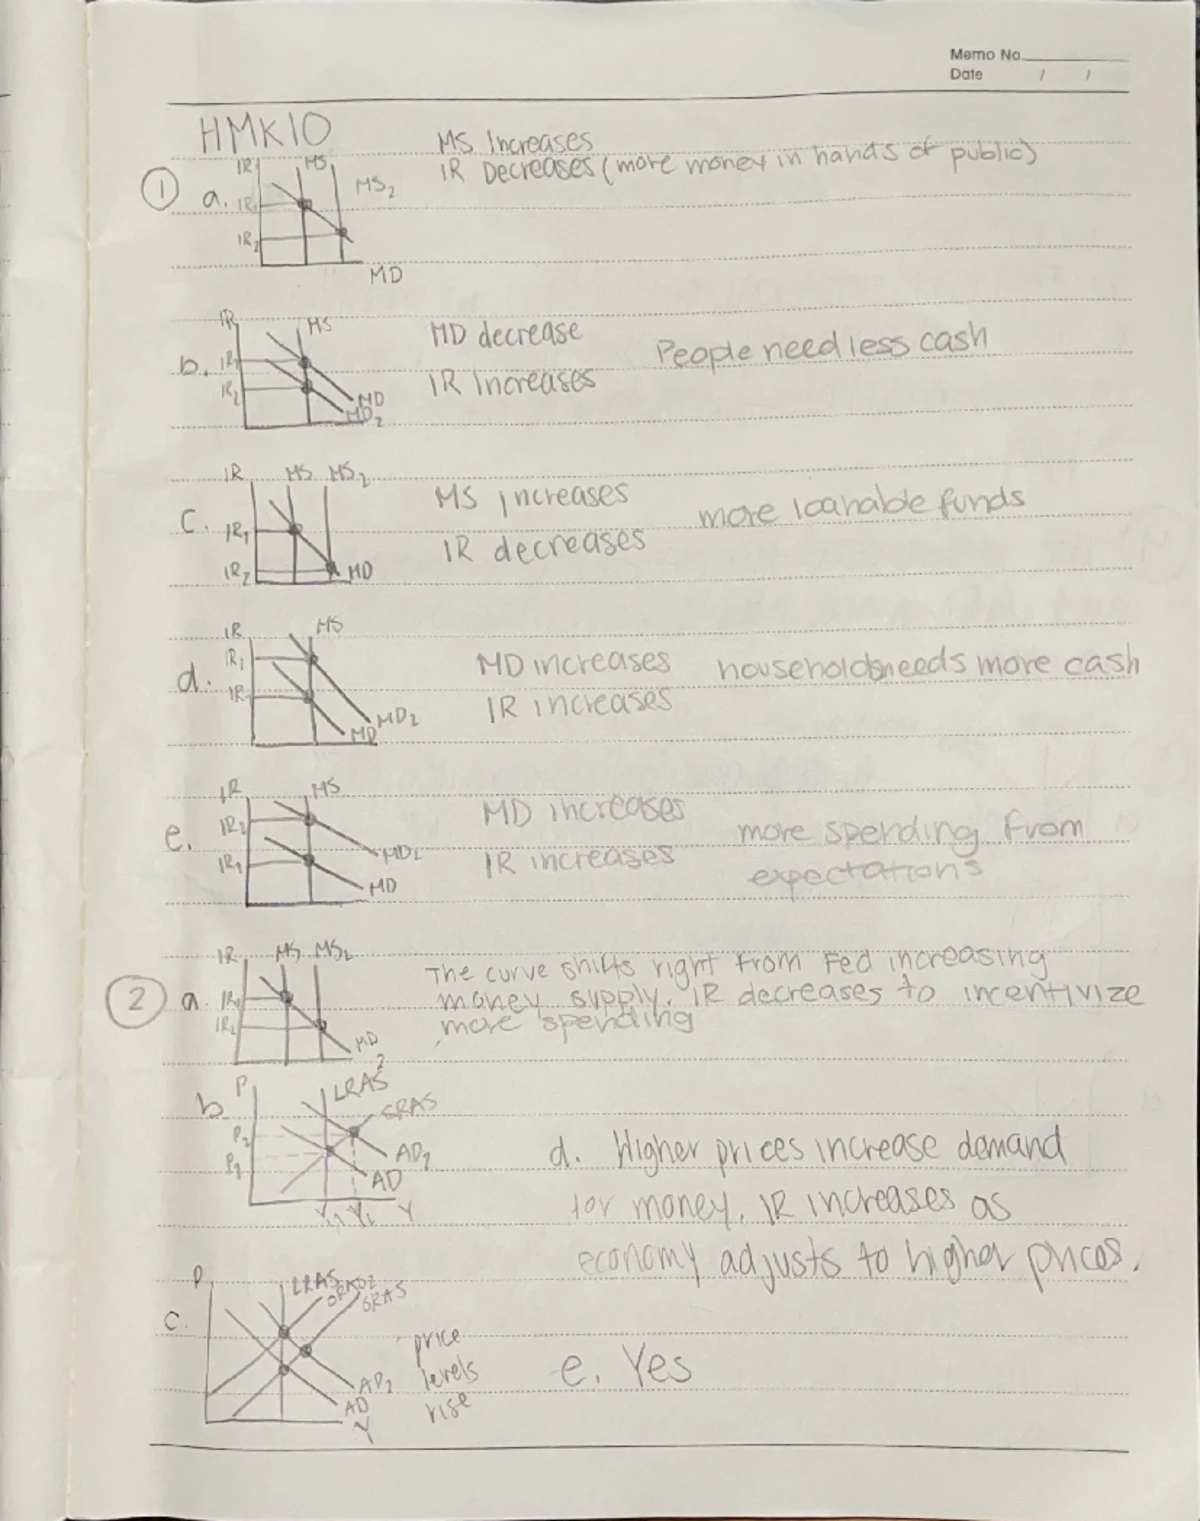 Memo No.
Date / /
HMK10
MS Increases
IR Decreases (more money in hands of public)
① a.
IR MS MS₂
IR₁
IR₂
MD
b.
IR MS
IR₁
IR₂
MD
MD₂
MD decrease
IR Increases
People need less cash
c.
IR MS MS₂
IR₁
IR₂ MD
MS increases
IR decreases
more loanable funds
d.
IR MS
IR₂
IR
MD₂
MD
MD increases
IR increases
households needs more cash
e.
IR MS
IR₂
IR₁
MD₂
MD
MD increases
IR increases
more spending from
expectations
② a.
IR MS MS₂
IR₁
IR₂
MD
The curve shifts right from Fed increasing
money supply. IR decreases to incentivize
more spending
b
P LRAS
SRAS
P₂
P₁
AD₂
AD
Y₁ Y₂ Y
d. Higher prices increase demand
for money. IR increases as
economy adjusts to higher prices.
c.
P LRAS SRAS2
SRAS
AD₂
AD
Y
price
levels
rise
e. Yes